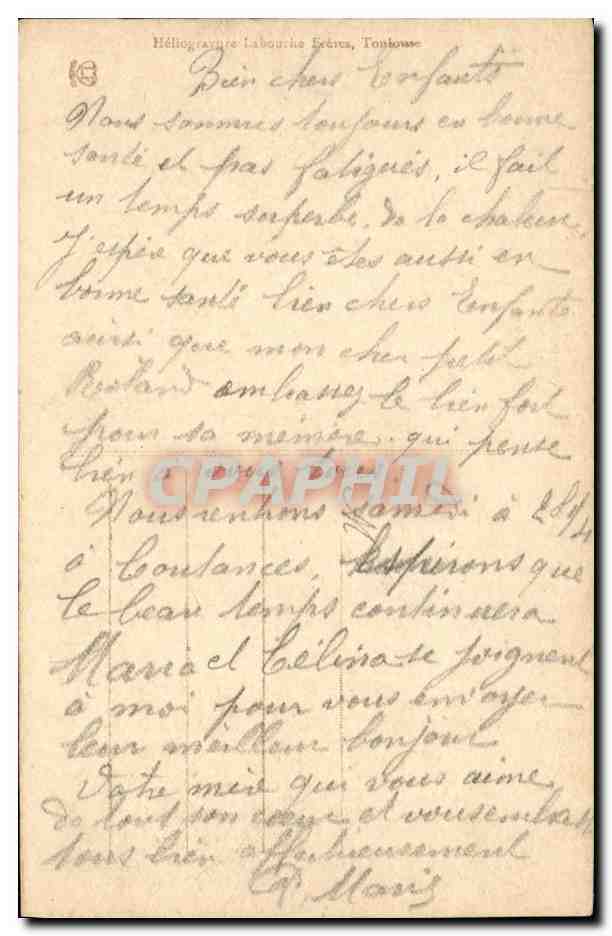 Héliogravure Labouche Frères, Toulouse
Bien chers Enfants
Nous sommes toujours en bonne
santé et pas fatigués, il fait
un temps superbe, de la chaleur,
J'espère que vous êtes aussi en
bonne santé bien chers Enfants
ainsi que mon cher petit
Roland embrassez le bien fort
pour sa mémère qui pense
bien à vous tous.
CPAPHIL
Nous rentrons samedi à
à Coutances, Espérons que
le beau temps continuera
Maria et Célina se joignent
à moi pour vous envoyer
leur meilleur bonjour
Votre mère qui vous aime
de tout son coeur et vous embrasse
tous bien affectueusement
Marie